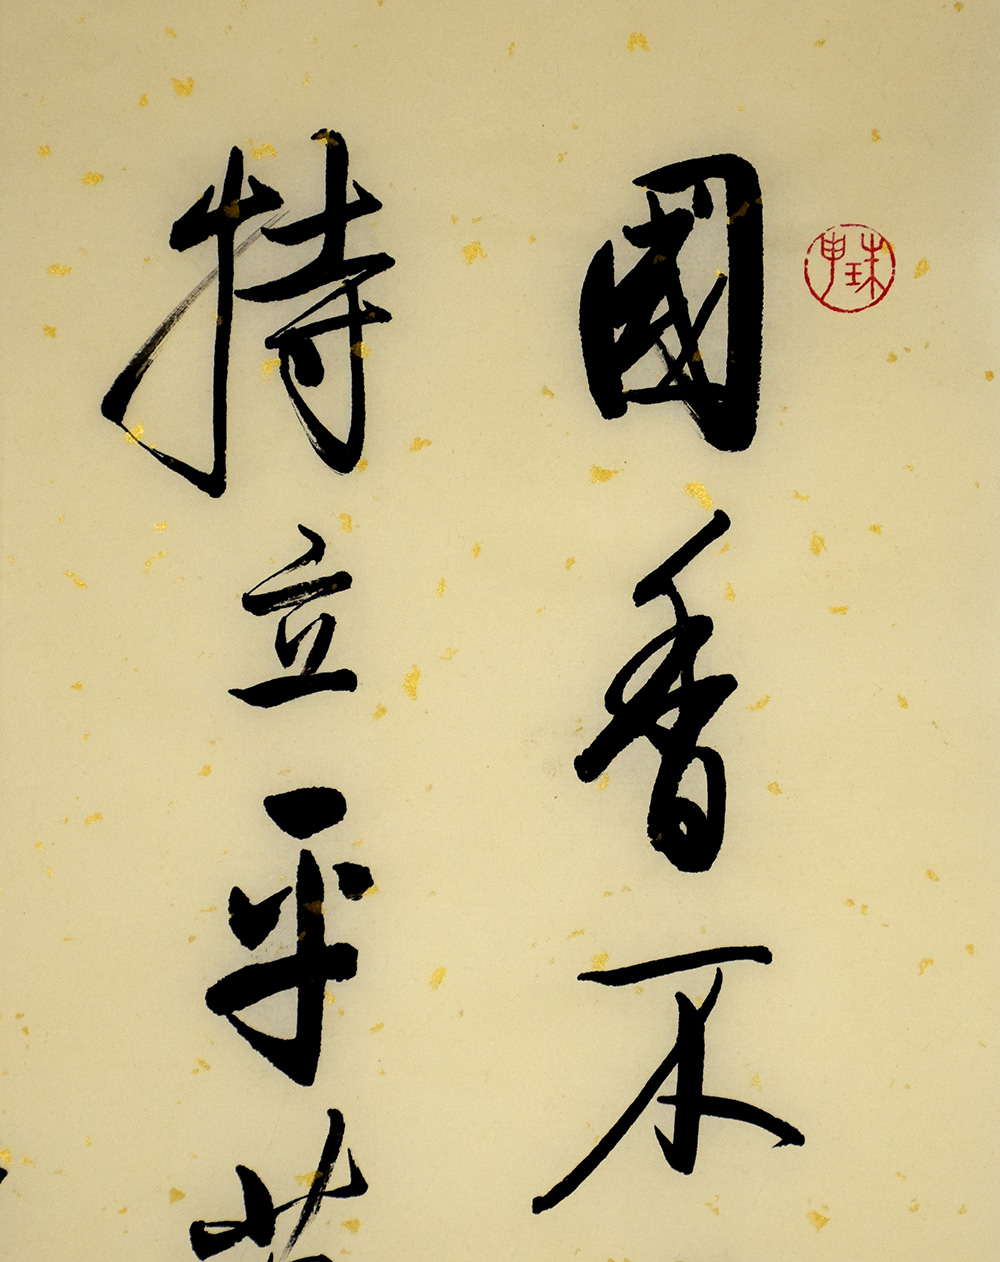 國香不
特立平